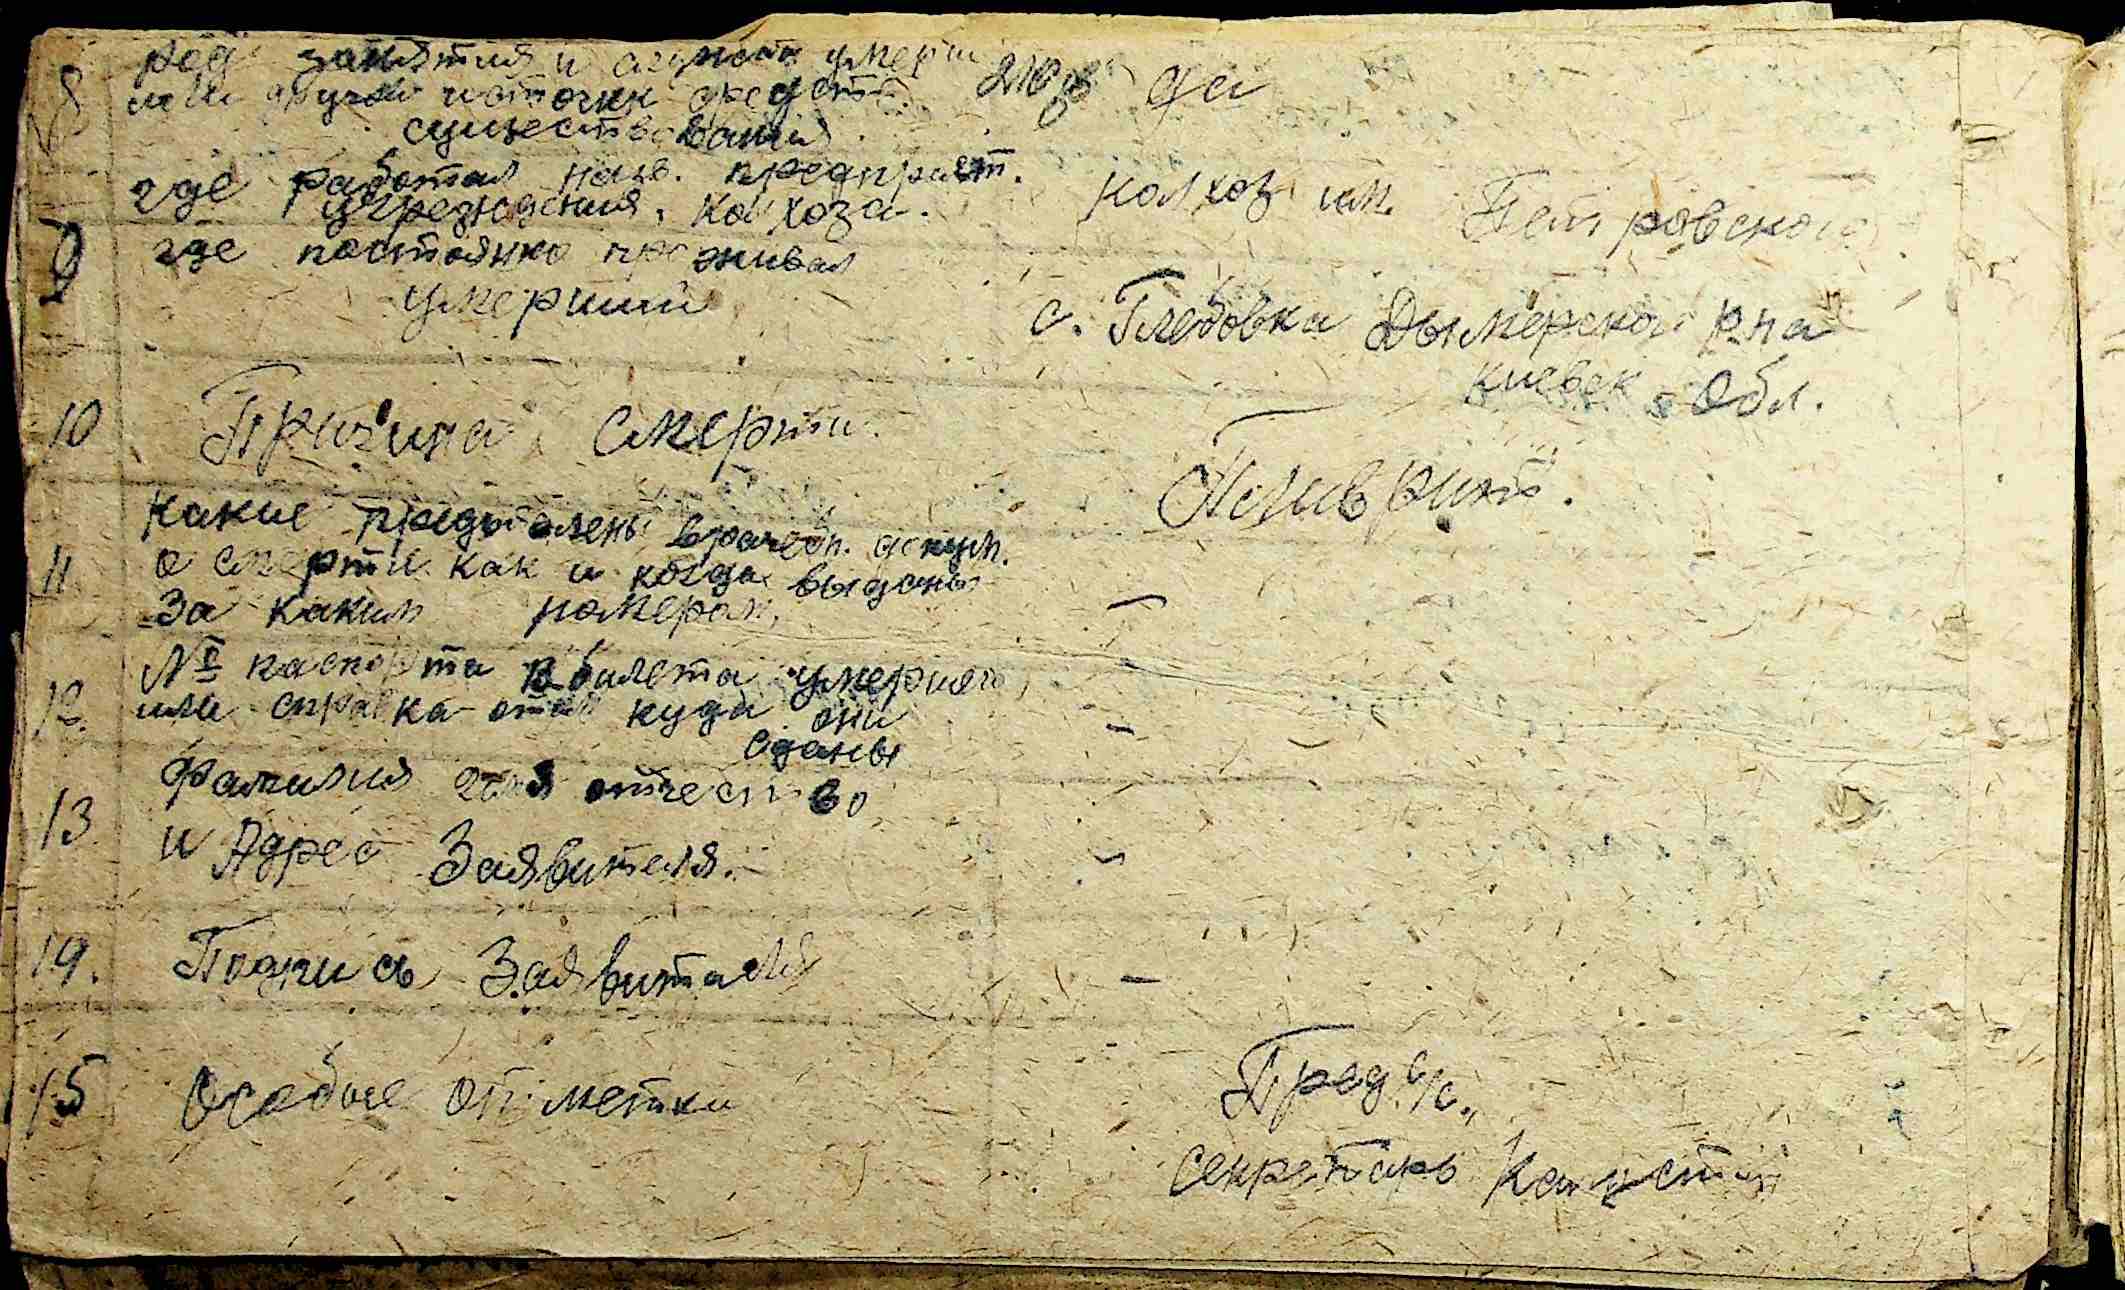 8 род занятия и служба умерш
или другой источник средств
существования
где работал назв. предприят. колхоз им. Петровского
учреждения, колхоза.
9 где постоянно проживал
умерший с. Глебовка Дымерского р-на
Киевск. Обл.
10 Причина смерти Пливрит.
какие предъявлены врачебн. докум.
11 о смерти как и когда выданы –
за каким номером,
№ паспорта в. билета умершего
12. или справка куда они –
сданы
13 Фамилия отчество
и Адрес Заявителя. –
14. Подпись Заявителя –
15 Особые отметки Пред. с/с.
Секретарь